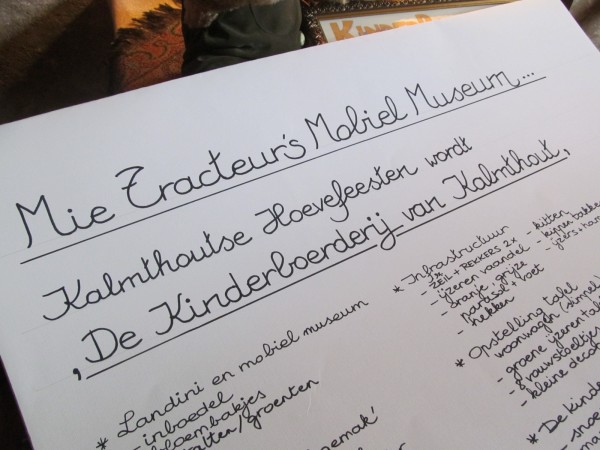 KINDER
Mie Tracteur's Mobiel Museum...
Kalmthoutse Hoevefeesten wordt
'De Kinderboerderij van Kalmthout,
* Landini en mobiel museum
- inboedel
bloembakjes
/groenten
* Infrastructuur
- ZEIL + REKKERS 2x
- ijzeren vaandel
- oranje, grijze
parasol + voet
- hekken
- kitten
- kippenbakken
* Opstelling tafel
woonwagen (simpel)
- groene ijzeren
- kleine
* De kinde